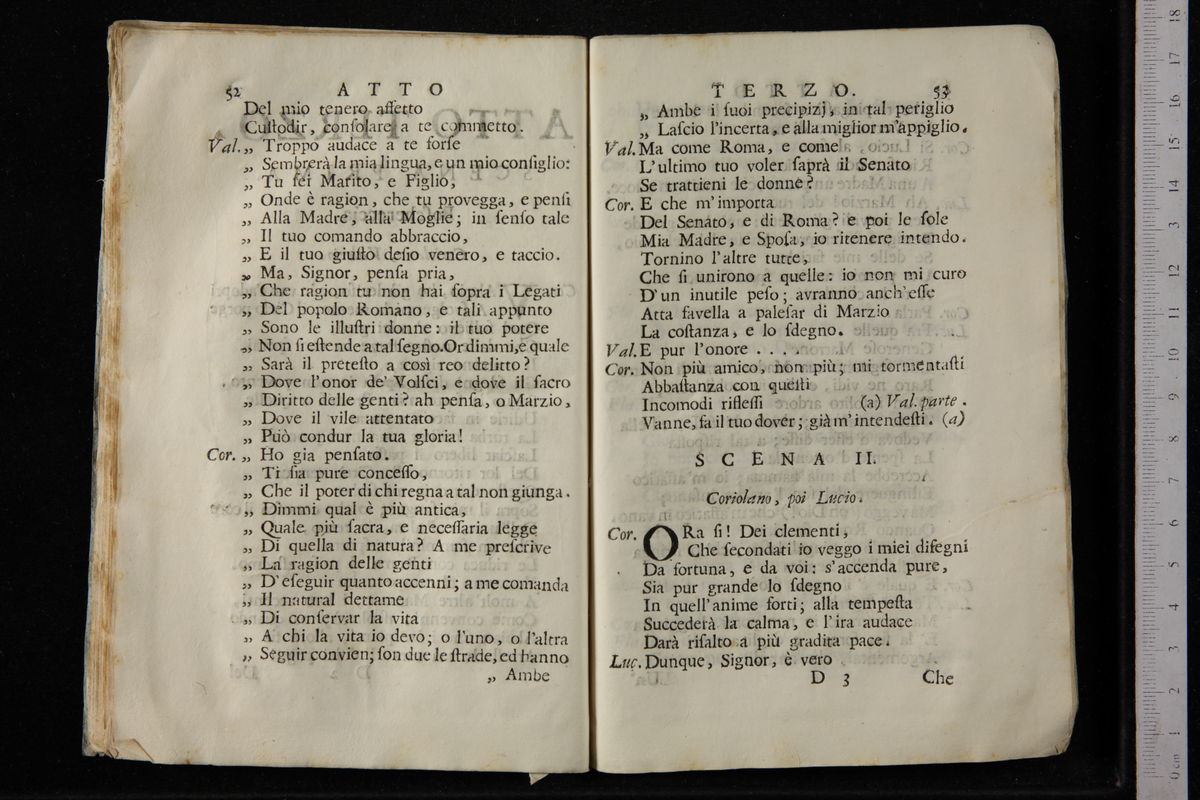 52 ATTO
Del mio tenero affetto
Cuſtodir, conſolare a te commetto.
Val. „ Troppo audace a te forſe
„ Sembrerà la mia lingua, e un mio conſiglio:
„ Tu ſei Marito, e Figlio,
„ Onde è ragion, che tu provegga, e penſi
„ Alla Madre, alla Moglie; in ſenſo tale
„ Il tuo comando abbraccio,
„ E il tuo giuſto deſio venero, e taccio.
„ Ma, Signor, penſa pria,
„ Che ragion tu non hai ſopra i Legati
„ Del popolo Romano, e tali appunto
„ Sono le illuſtri donne: il tuo potere
„ Non ſi eſtende a tal ſegno. Or dimmi, e quale
„ Sarà il preteſto a così reo delitto?
„ Dove l'onor de' Volſci, e dove il ſacro
„ Diritto delle genti? ah penſa, o Marzio,
„ Dove il vile attentato
„ Può condur la tua gloria!
Cor. „ Ho gia penſato.
„ Ti ſia pure conceſſo,
„ Che il poter di chi regna a tal non giunga.
„ Dimmi qual è più antica,
„ Quale più ſacra, e neceſſaria legge
„ Di quella di natura? A me preſcrive
„ La ragion delle genti
„ D'eſeguir quanto accenni; a me comanda
„ Il natural dettame
„ Di conſervar la vita
„ A chi la vita io devo; o l'uno, o l'altra
„ Seguir convien; ſon due le ſtrade, ed hanno
„ Ambe
TERZO. 53
„ Ambe i ſuoi precipizj, in tal periglio
„ Laſcio l'incerta, e alla miglior m'appiglio.
Val. Ma come Roma, e come
L'ultimo tuo voler ſaprà il Senato
Se trattieni le donne?
Cor. E che m'importa
Del Senato, e di Roma? e poi le ſole
Mia Madre, e Spoſa, io ritenere intendo.
Tornino l'altre tutte,
Che ſi unirono a quelle: io non mi curo
D'un inutile peſo; avranno anch'eſſe
Atta favella a paleſar di Marzio
La coſtanza, e lo ſdegno.
Val. E pur l'onore . . . .
Cor. Non più amico, non più; mi tormentaſti
Abbaſtanza con queſti
Incomodi rifleſſi (a) Val. parte.
Vanne, fa il tuo dover; già m'intendeſti. (a)
SCENA II.
Coriolano, poi Lucio.
Cor. ORa ſi! Dei clementi,
Che ſecondati io veggo i miei diſegni
Da fortuna, e da voi: s'accenda pure,
Sia pur grande lo ſdegno
In quell'anime forti; alla tempeſta
Succederà la calma, e l'ira audace
Darà riſalto a più gradita pace.
Luc. Dunque, Signor, è vero
D 3 Che
0 cm 1 2 3 4 5 6 7 8 9 10 11 12 13 14 15 16 17 18